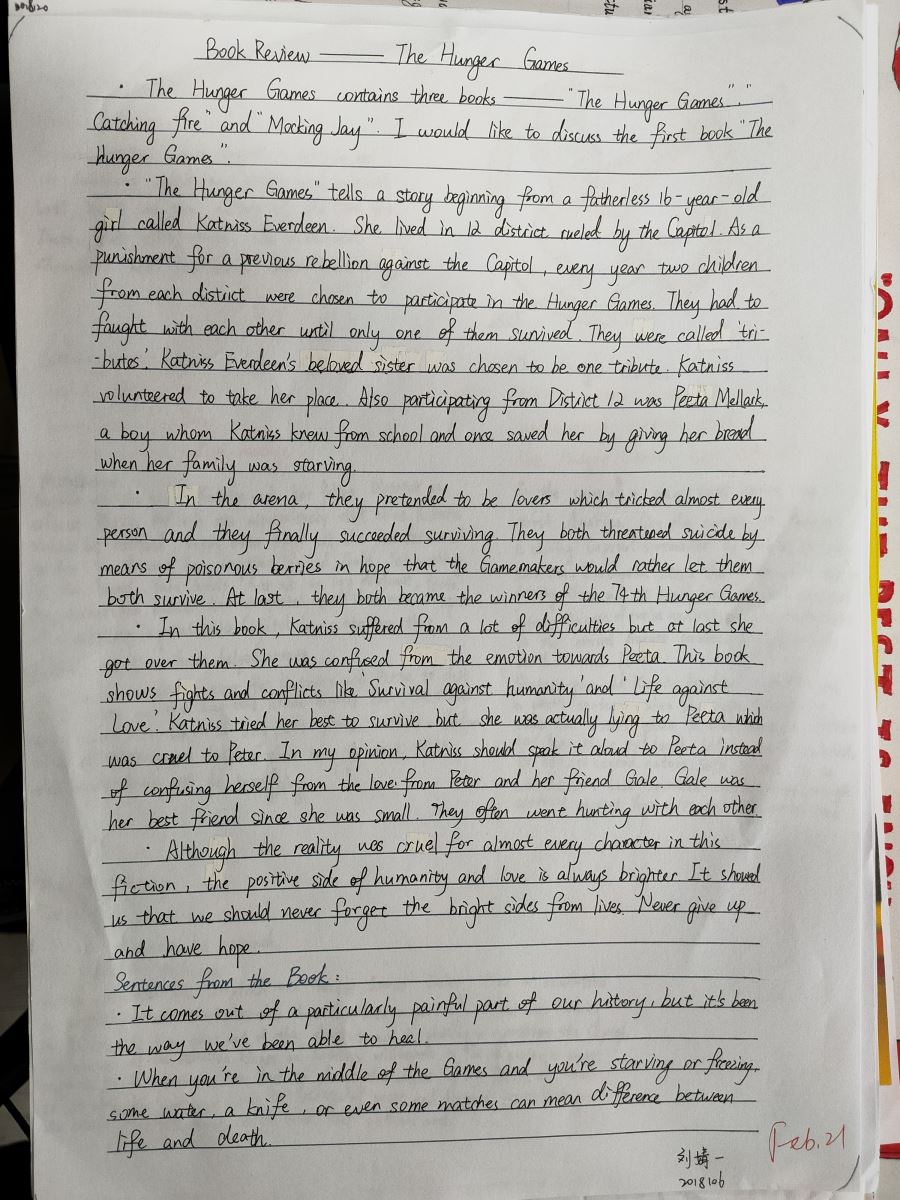 Book Review —— The Hunger Games
· The Hunger Games contains three books —— "The Hunger Games". "
Catching fire" and "Mocking Jay". I would like to discuss the first book "The
Hunger Games".
· "The Hunger Games" tells a story beginning from a fatherless 16-year-old
girl called Katniss Everdeen. She lived in 12 district rueled by the Capitol. As a
punishment for a previous rebellion against the Capitol, every year two children
from each district were chosen to participate in the Hunger Games. They had to
faught with each other until only one of them sunived. They were called 'tri-
-butes'. Katniss Everdeen's beloved sister was chosen to be one tribute. Katniss
volunteered to take her place. Also participating from District 12 was Peeta Mellark,
a boy whom Katniss knew from school and once saved her by giving her bread
when her family was starving.
· In the arena, they pretended to be lovers which tricked almost every
person and they finally succeeded surviving. They both threatened suicide by
means of poisonous berries in hope that the Gamemakers would rather let them
both survive. At last, they both became the winners of the 74th Hunger Games.
· In this book, Katniss suffered from a lot of difficulties but at last she
got over them. She was confused from the emotion towards Peeta. This book
shows fights and conflicts like 'Survival against humanity' and 'Life against
Love'. Katniss tried her best to survive but she was actually lying to Peeta which
was cruel to Peter. In my opinion, Katniss should speak it aloud to Peeta instead
of confusing herself from the love from Peter and her friend Gale. Gale was
her best friend since she was small. They often went hunting with each other.
· Although the reality was cruel for almost every character in this
fiction, the positive side of humanity and love is always brighter. It showed
us that we should never forget the bright sides from lives. Never give up
and have hope.
Sentences from the Book:
· It comes out of a particularly painful part of our history, but it's been
the way we've been able to heal.
· When you're in the middle of the Games and you're starving or freezing,
some water, a knife, or even some matches can mean difference between
life and death.
Feb.21
刘婧一
2018106